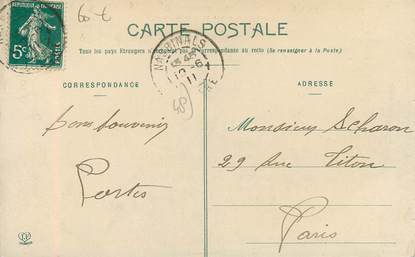 60 €
CARTE POSTALE
Tous les pays Etrangers n'acceptent pas la correspondance au recto (Se renseigner à la Poste)
NASBINALS
15 45
12-6
11
48
REPUBLIQUE FRANÇAISE
5c
POSTES
CORRESPONDANCE
ADRESSE
bons souvenirs
Portes
Monsieur Scharon
29 Rue Titon
Paris